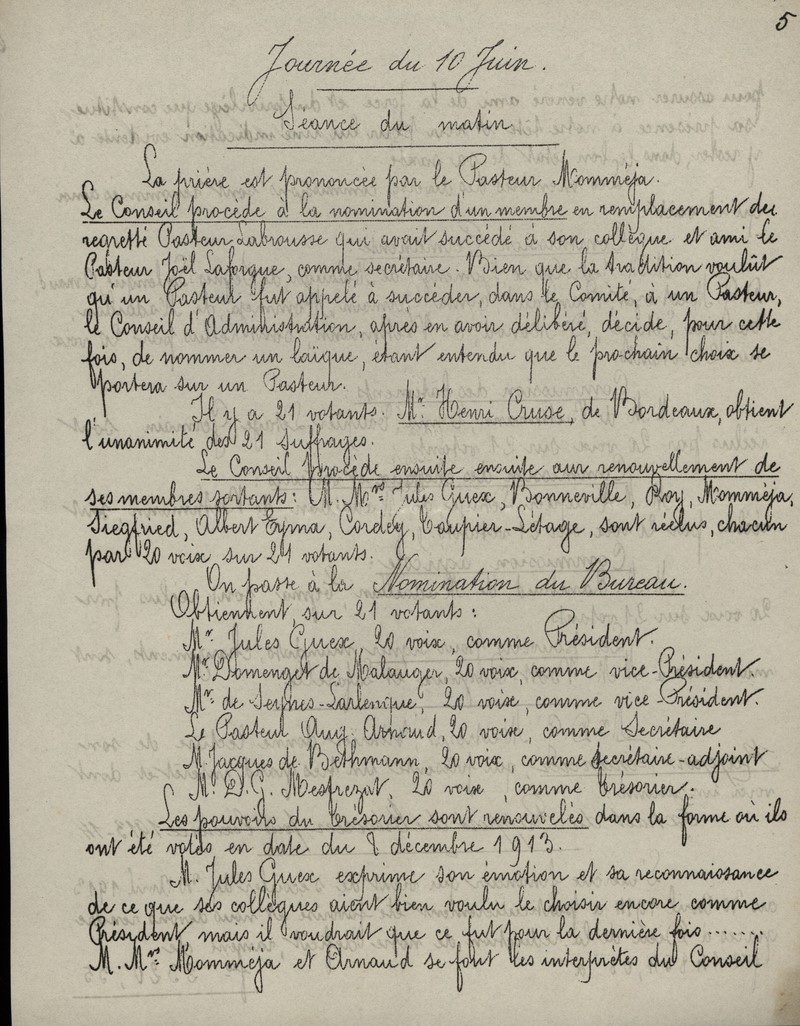 5
Journée du 10 Juin.
Séance du matin
La prière est prononcée par le Pasteur Momméja.
Le Conseil procède à la nomination d'un membre en remplacement du
regretté Pasteur Labrousse qui avait succédé à son collègue et ami le
Pasteur Joël Laforgue, comme secrétaire. Bien que la tradition voulût
qu'un Pasteur fut appelé à succéder, dans le Comité, à un Pasteur,
le Conseil d'Administration, après en avoir délibéré, décide, pour cette
fois, de nommer un laïque, étant entendu que le prochain choix se
portera sur un Pasteur.
Il y a 21 votants. Mr. Henri Cruse, de Bordeaux, obtient
l'unanimité des 21 suffrages.
Le Conseil procède ensuite ensuite aur renouvellement de
ses membres sortants: M. Mrs Jules Guex, Bonneville, Roy, Momméja,
Siegfried, Albert Eyma, Cordey, Taupier-Létage, sont réélus, chacun
par 20 voix sur 21 votants.
On passe à la Nomination du Bureau.
Obtiennent, sur 21 votants:
Mr. Jules Guex, 20 voix, comme Président.
Mr. Domenget de Malauger, 20 voix, comme vice-Président.
Mr. de 20 voix, comme vice-Président.
Le Pasteur Aug. Arnaud, 20 voix, comme Secrétaire
M. Jacques de Bethmann, 20 voix, comme secrétaire-adjoint
M. D.G. Mestrezat, 20 voix, comme trésorier.
Les pouvoirs du trésorier sont renouvelés dans la forme où ils
ont été votés en date du 8 décembre 1913.
M. Jules Guex exprime son émotion et sa reconnaissance
de ce que ses collègues aient bien voulu le choisir encore comme
Président, mais il voudrait que ce fut pour la dernière fois.......
M. Mrs Momméja et Arnaud se font les interprètes du Conseil